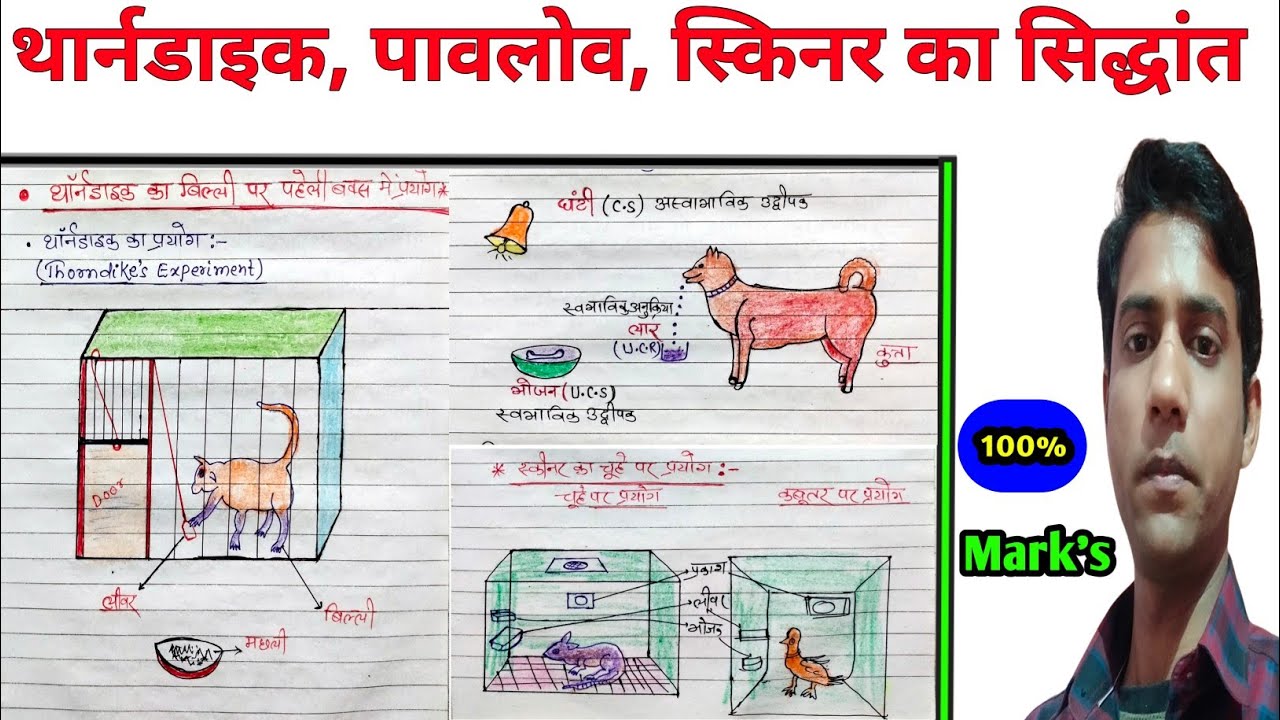 थार्नडाइक, पावलोव, स्किनर का सिद्धांत
• थॉर्नडाइक का बिल्ली पर पहेली बक्स में प्रयोग*
• थॉर्नडाइक का प्रयोग :-
(Thorndike's Experiment)
Door
लीवर
बिल्ली
मछली
घंटी (C.S) अस्वाभाविक उद्दीपक
स्वभाविक अनुक्रिया
लार
(U.C.R)
कुत्ता
भोजन (U.C.S)
स्वभाविक उद्दीपक
* स्कीनर का चूहे पर प्रयोग :-
चूहे पर प्रयोग
कबूतर पर प्रयोग
प्रकाश
लीवर
भोजन
100%
Mark's